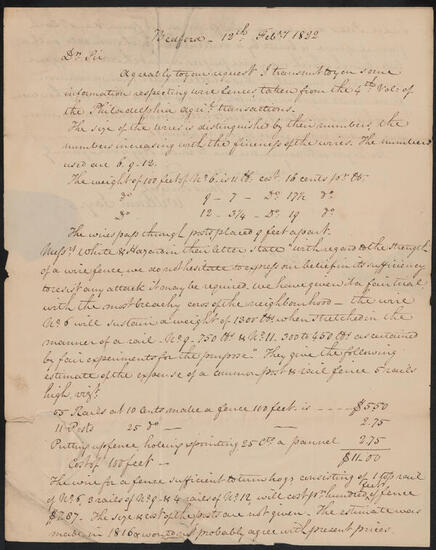 Bedford - 12th Feby 1822
Dr Sir
Agreeably to your request I transmit to you some
information respecting wire fences taken from the 4th Vol: of
the Philadelphia agril transactions.
The size of the wires is distinguished by their numbers, the
numbers increasing with the fineness of the wires. The numbers
used are 6. 9. 12.
The weight of 100 feet of No 6. is 11 lb. cost 16 cents pr lb.
Do 9 - 7 - Do 17½ do
Do 12 - 3¼ - Do 19 do
The wires pass through posts placed 9 feet apart.
Messrs White & Hazard in their letter state "with regard to the strength
of a wire fence, we do not hesitate to express our belief in its sufficiency
to resist any attack it may be required. we have given it a fair trial
with the most breachy cows of the neighbourhood - the wire
No 6 will sustain a weight of 1300 lbs when stretched in the
manner of a rail No 9 - 750 lbs & No 11. 300 to 450 lbs as ascertained
by fair experiments for the purpose". They give the following
estimate of the expense of a common post & rail fence 5 rails
high, vizt
55 Rails at 10 Cents make a fence 100 feet. is - - - - $5.50
11 Posts 25 do - 2.75
Putting up fence holeing & pointing 25 Cts a pannel 2.75
Cost of 100 feet - $11.00
The wire for a fence sufficient to turn hogs consisting of 1 top rail
of No 6, 3 rails of No 9 & 4 rails of No 12 will cost pr hundred feet of fence
$7.87. The size & cost of the posts are not given. The estimate was
made in 1816 & would not probably agree with present prices.